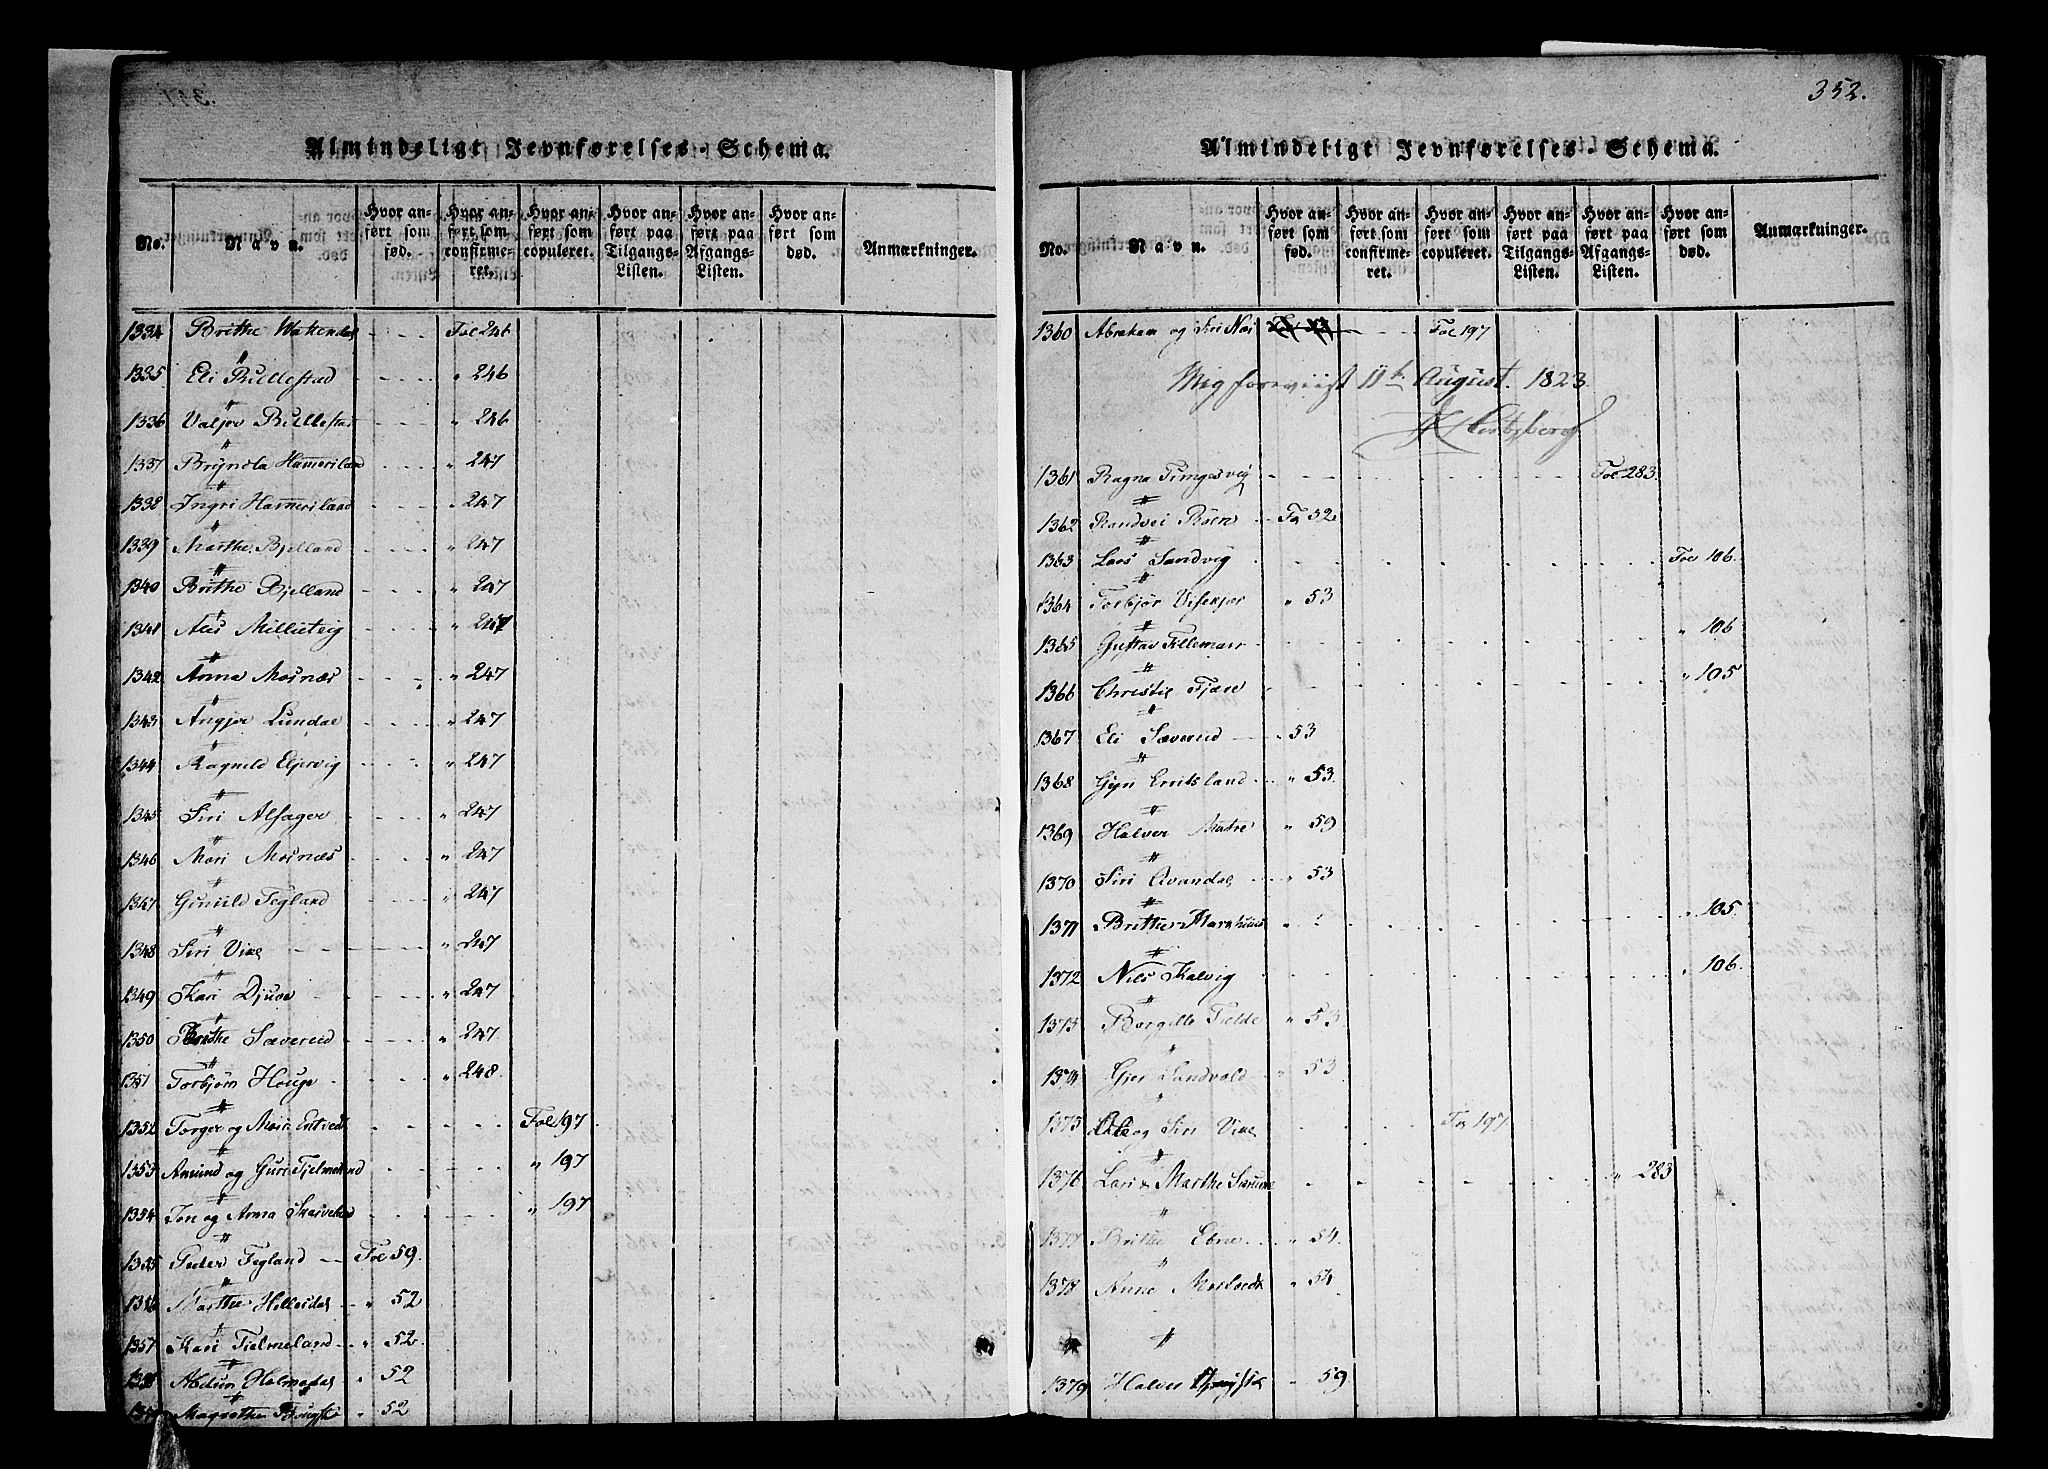 Almindeligt Jevnførelses-Schema.
No. Navn. Hvor anført som fød. Hvor anført som confirmeret. Hvor anført som copuleret. Hvor anført paa Tilgangs-Listen. Hvor anført paa Afgangs-Listen. Hvor anført som død. Anmærkninger.
1334 Brithe Fol 246
1335 Eli Bullestad " 246
1336 Valjer Bullestad " 246
1337 Brynela Hammeriland " 247
1338 Ingri Hammeriland " 247
1339 Marthe Bjelland " 247
1340 Brithe Bjelland " 247
1341 " 247
1342 Anna Mosnæs " 247
1343 Lundal " 247
1344 Ragnild Eljervig " 247
1345 Siri Alsager " 247
1346 Mari Mosnæs " 247
1347 Gunild Fegland " 247
1348 Siri Vixe " 247
1349 Kari Djuve " 247
1350 Brithe Sæverud " 247
1351 Torbjørn Houge " 248.
1352 Torger og Mari Fol 197
1353 Amund og Guri Tjelmeland " 197
1354 Jon og Anna " 197
1355 Peder Fegland Fol 59.
1356 Marthe Hellesdal " 52
1357 Kari Tielmeland " 52.
1358 Halmedal " 52
Magrethe " 52
352.
Almindeligt Jevnførelses-Schema.
No. Navn. Hvor anført som fød. Hvor anført som confirmeret. Hvor anført som copuleret. Hvor anført paa Tilgangs-Listen. Hvor anført paa Afgangs-Listen. Hvor anført som død. Anmærkninger.
1360 Abraham og Siri Næs Fol 197
Mig foreviist 11te August. 1823.
Hertzberg
1361 Ragna Tungesvig Fol 283.
1362 Randvei Røen Fo 52
1363 Lars Sandvig Fol 106.
1364 Torbjør " 53
1365 Gustav Tillemann " 106
1366 Christie Fjære " 105
1367 Eli Sæverud " 53
1368 Gyri Eriksland " 53.
1369 Halver Matre " 59
1370 Siri Qvandal " 53
1371 Brithe Markhuus " 105.
1372 Nils Kalvig " 106.
1373 Borgille Tielde " 53.
1374 Gjer Sandvold " 53.
1375 Ole og Siri Vixe Fo 197
1376 Lars & Marthe " 283
1377 Brithe Ebne " 54.
1378 Anne " 54
1379 Halver " 59.